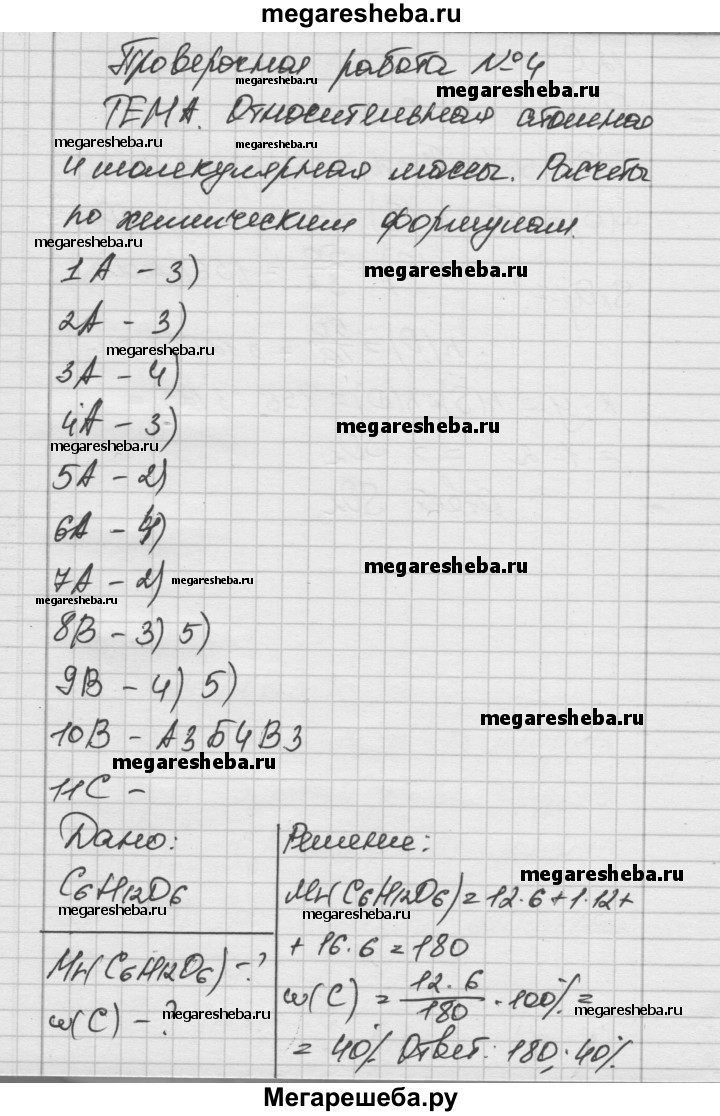 megaresheba.ru
Проверочная работа №4
megaresheba.ru
ТЕМА. Относительная атомная
megaresheba.ru megaresheba.ru
и молекулярная массы. Расчеты
по химическим формулам.
megaresheba.ru
1А - 3)
megaresheba.ru
2А - 3)
megaresheba.ru
3А - 4)
4А - 3)
megaresheba.ru
megaresheba.ru
5А - 2)
6А - 4)
megaresheba.ru
7А - 2)
megaresheba.ru
megaresheba.ru
8В - 3) 5)
9В - 4) 5)
megaresheba.ru
10В - А3 Б4 В3
megaresheba.ru
11С -
Дано:
C6H12O6
megaresheba.ru
Mr(C6H12O6) - ?
ω(C) - ?
megaresheba.ru
Решение:
megaresheba.ru
Mr(C6H12O6) = 12·6+1·12+
megaresheba.ru
+ 16·6 = 180
ω(C) = 12·6/180 · 100% =
megaresheba.ru
= 40% Ответ: 180; 40%.
Мегарешеба.ру